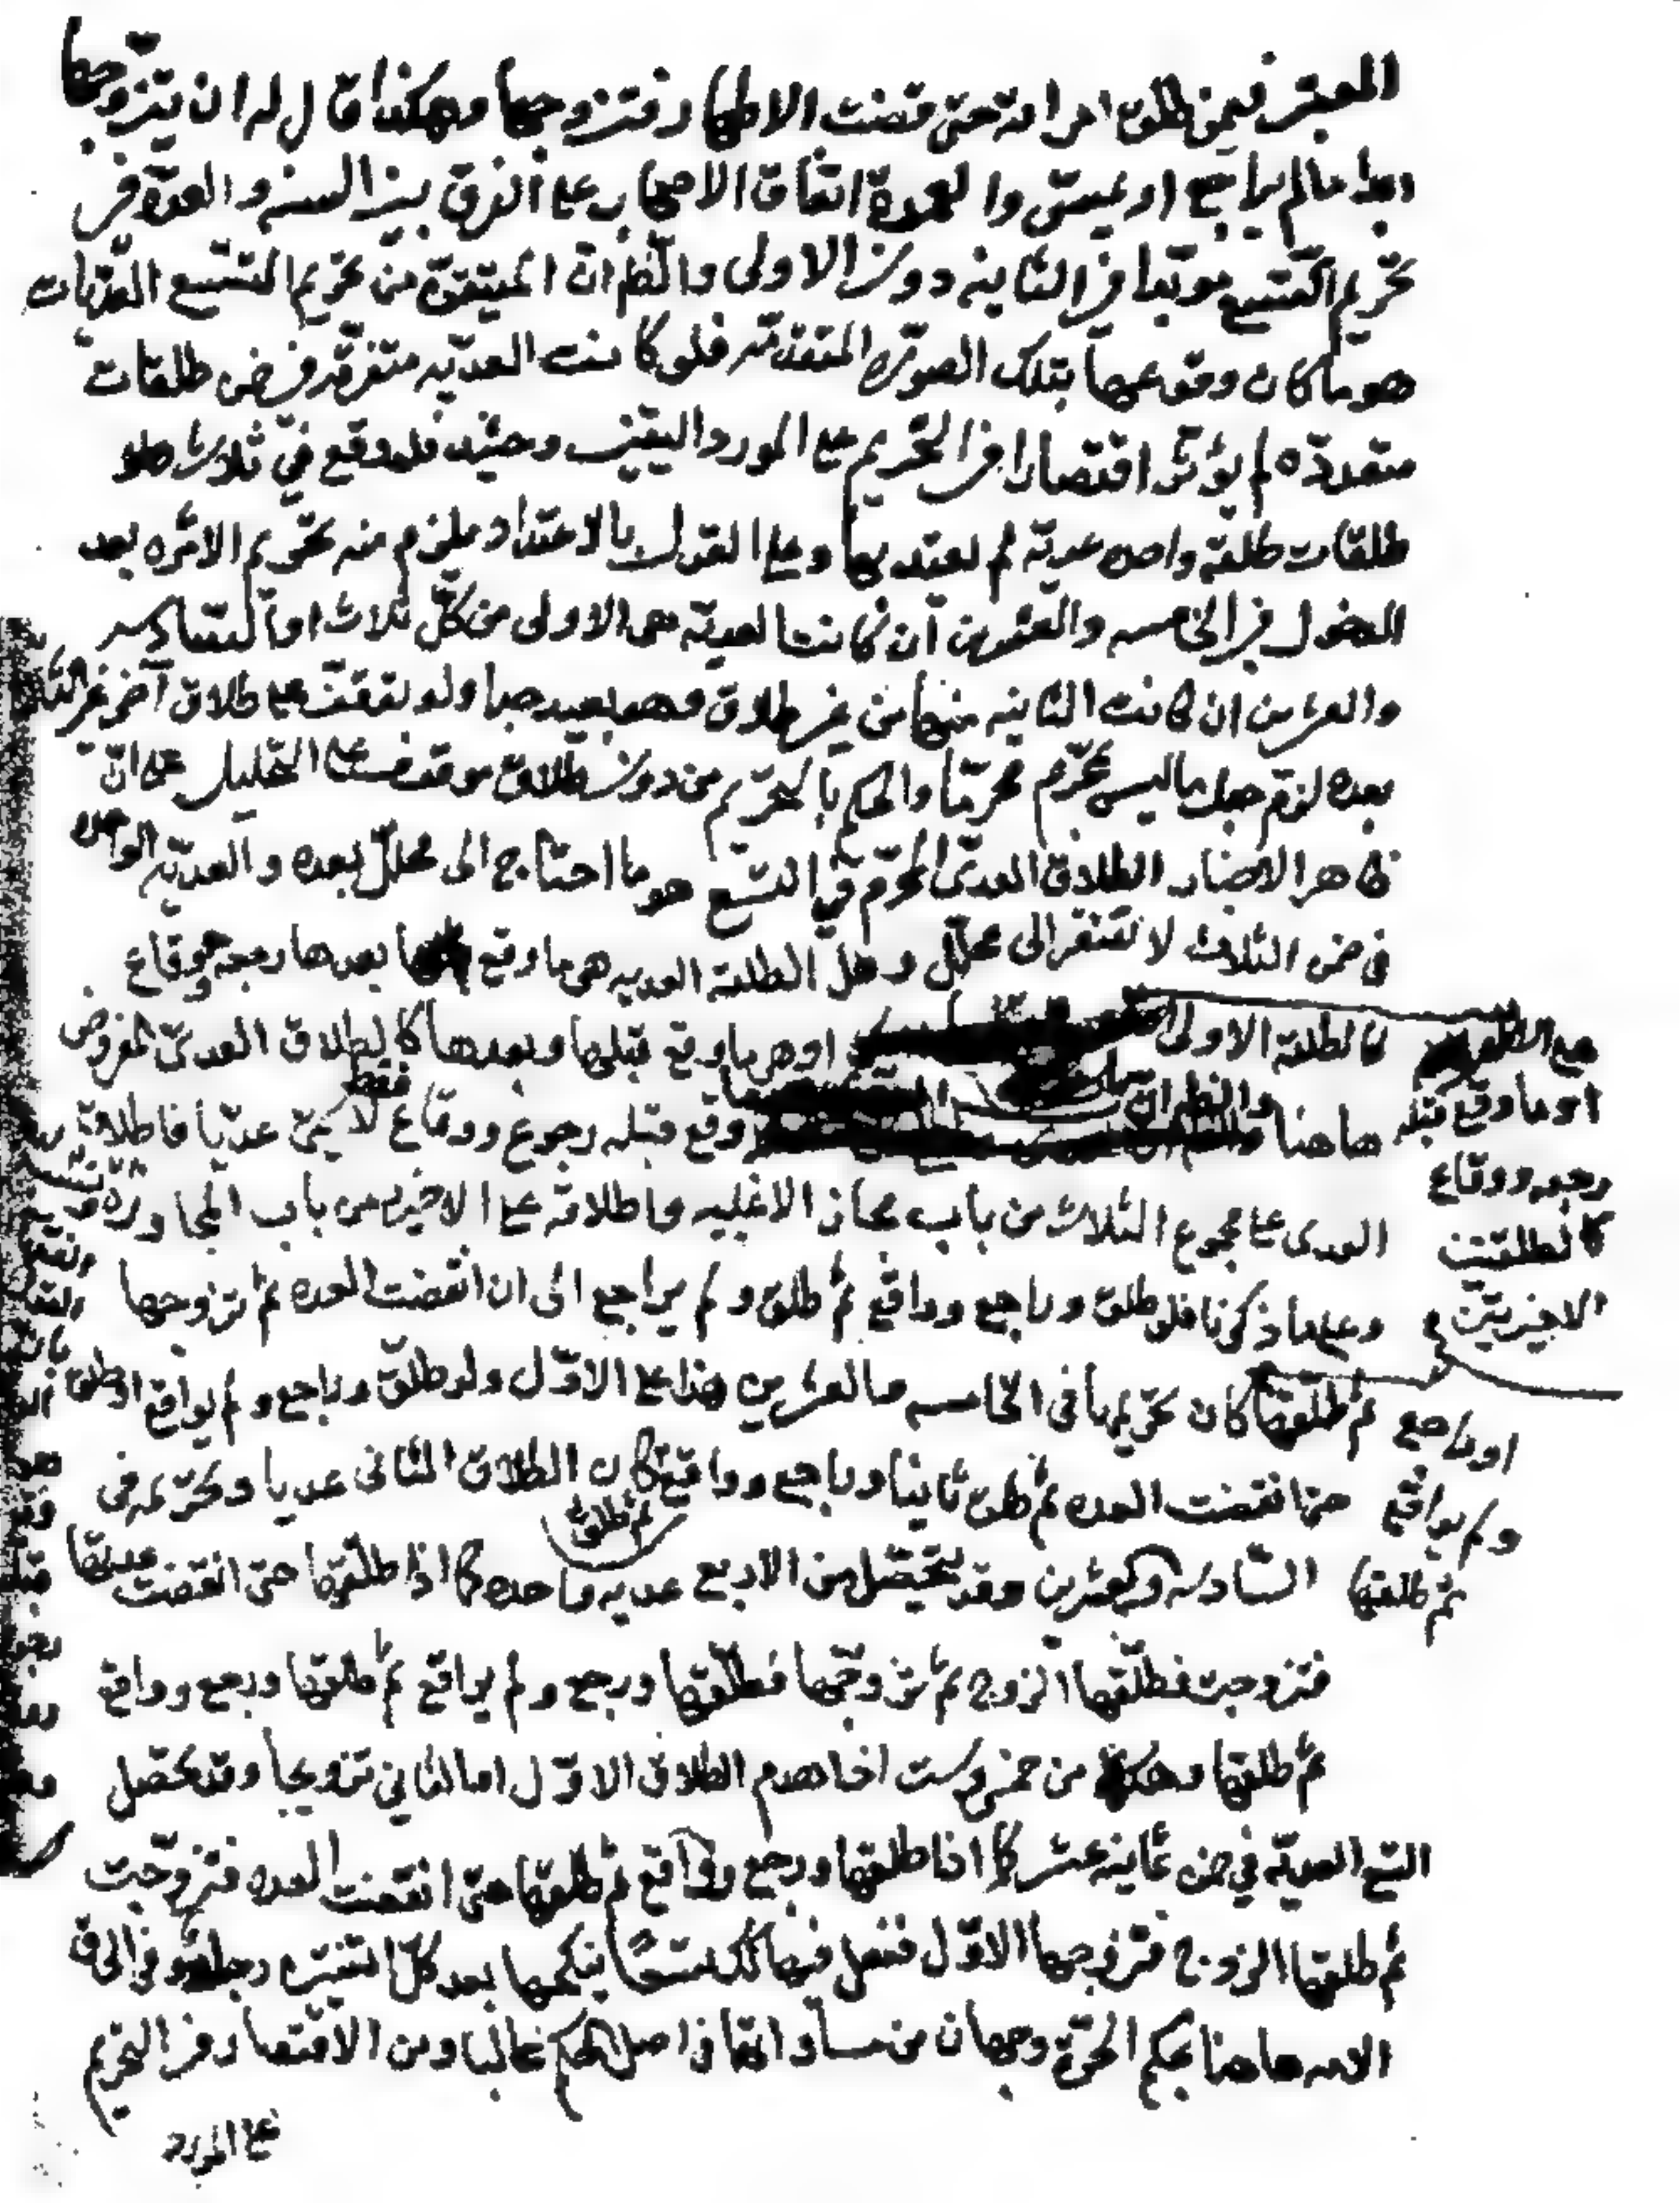 المعتبر فيمن طلق امراته حتى قضت الاطهار فتزوجها وهكذا قال له ان يتزوجها
ابدا ما لم يراجع او يمس والعمدة اتفاق الاصحاب على الفرق بين السنه والعدة في
تحريم التسع موبدا في الثانيه دون الاولى والظ ان المتيقن من تحريم التسع العديات
هو ما كان وقوعها بتلك الصورة المتقدمه فلو كانت العديه متفرقه في ضمن طلقات
متعددة لم يؤثر اقتصارا في التحريم على المورد اليقين وحينئذ فلو وقع في ثلاث
طلقات طلقة واحده عدية لم يعتد بها وعلى القول بالاعتداد يلزم منه تحريم الامراه بعد
الدخول في الخامسه والعشرين ان كانت العدية هي الاولى من كل ثلاث او السادسه
والعشرين ان كانت الثانيه منها من غير طلاق وهو بعيد جدا ولو توقفت على طلاق آخر غير الثالث
بعده لزم جعل ما ليس بمحرم محرما والحكم بالتحريم من دون طلاق موقوف على التحليل على ان
ظاهر الاخبار الطلاق العدي المحرم في التسع هو ما احتاج الى محلل بعده والعدية الواحده
في ضمن الثلاث لا تفتقر الى محلل وهل الطلقة العديه هي ما وقع بعدها رجعه ووقاع
كالطلقة الاولى او هي ما وقع قبلها وبعدها كالطلاق العدي المفروض
هاهنا والظ ان ما وقع قبله رجوع ووقاع فقط لا يسمى عديا فاطلاق
العدى على مجموع الثلاث من باب مجاز الاغلبيه واطلاقه على الاخير من باب المجاورة
وعلى ما ذكرنا فلو طلق وراجع وواقع ثم طلق ولم يراجع الى ان انقضت العده ثم تزوجها
ثم طلقها كان تحريمها في الخامسه والعشرين هذا على الاول ولو طلق وراجع ولم يواقع او طلق
حتى انقضت العده ثم طلق ثانيا وراجع وواقع ثم طلق كان الطلاق الثاني عديا وتحريمه في
السادسه والعشرين وقد يتحصل من الاربع عديه واحده كما اذا طلقها حتى انقضت عدتها
فتزوجت فطلقها الزوج ثم تزوجها فطلقها ورجع ولم يواقع ثم طلقها ورجع وواقع
ثم طلقها وهكذا من خمس وست اذا هدم الطلاق الاول او الثاني تزويجا وقد تحصل
التسع العدية في ضمن ثمانية عشر كما اذا طلقها ورجع وواقع ثم طلقها حتى انقضت العده فتزوجت
ثم طلقها الزوج فتزوجها الاول ففعل فيها كك تسعا ينكحها بعد كل اثنتين رجل وفي الحاق
الامه هاهنا بحكم الحرة وجهان من مساواتها في اصل الحكم غالبا ومن الاقتصار في التحريم
على المورد
مع
او ما وقع قبله
رجوع ووقاع
كالطلقتين
الاخيرتين
او راجع
ولم يواقع
ثم طلقها